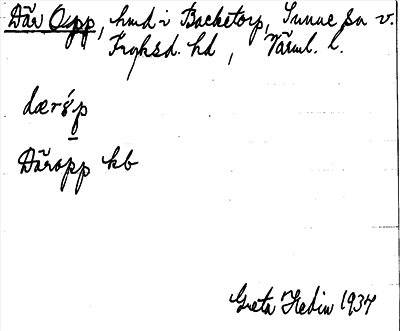 Där Opp, hmd i Backetorp, Sunne sn v.
Fryksd. hd, Värml. l.
dærśp
Däropp kb
Greta Hedin 1937